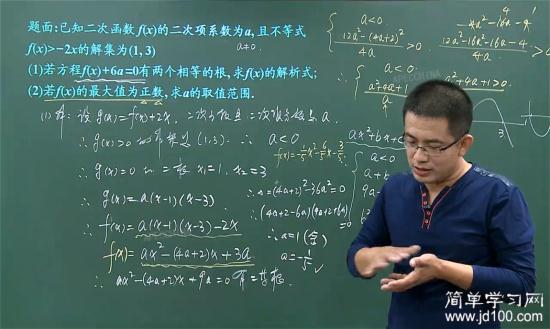 题面:已知二次函数f(x)的二次项系数为a,且不等式
f(x)>-2x的解集为(1,3)
a≠0.
(1)若方程f(x)+6a=0有两个相等的根,求f(x)的解析式;
(2)若f(x)的最大值为正数,求a的取值范围.
(1)解:设g(x)=f(x)+2x,
∴g(x)>0的解集是(1,3). ∴a<0
∴g(x)=0的二根x₁=1, x₂=3
∴g(x)=a(x-1)(x-3)
∴f(x)=a(x-1)(x-3)-2x
f(x)=ax²-(4a+2)x+3a
∴ax²-(4a+2)x+9a=0有二等根
f(x)=-1/5x²-6/5x-3/5
(4a+2)²-36a²=0
∴(4a+2-6a)(4a+2+6a)=0
∴a=1(舍)
a=-1/5 ✓
a<0
12a²-(4a+2)²/4a>0
4a²-16a-4
12a²-16a²-16a-4/4a>0
∴ a<0
a²+4a+1>0
ax²+bx+c
a<0
3
简单学习网
www.jd100.com